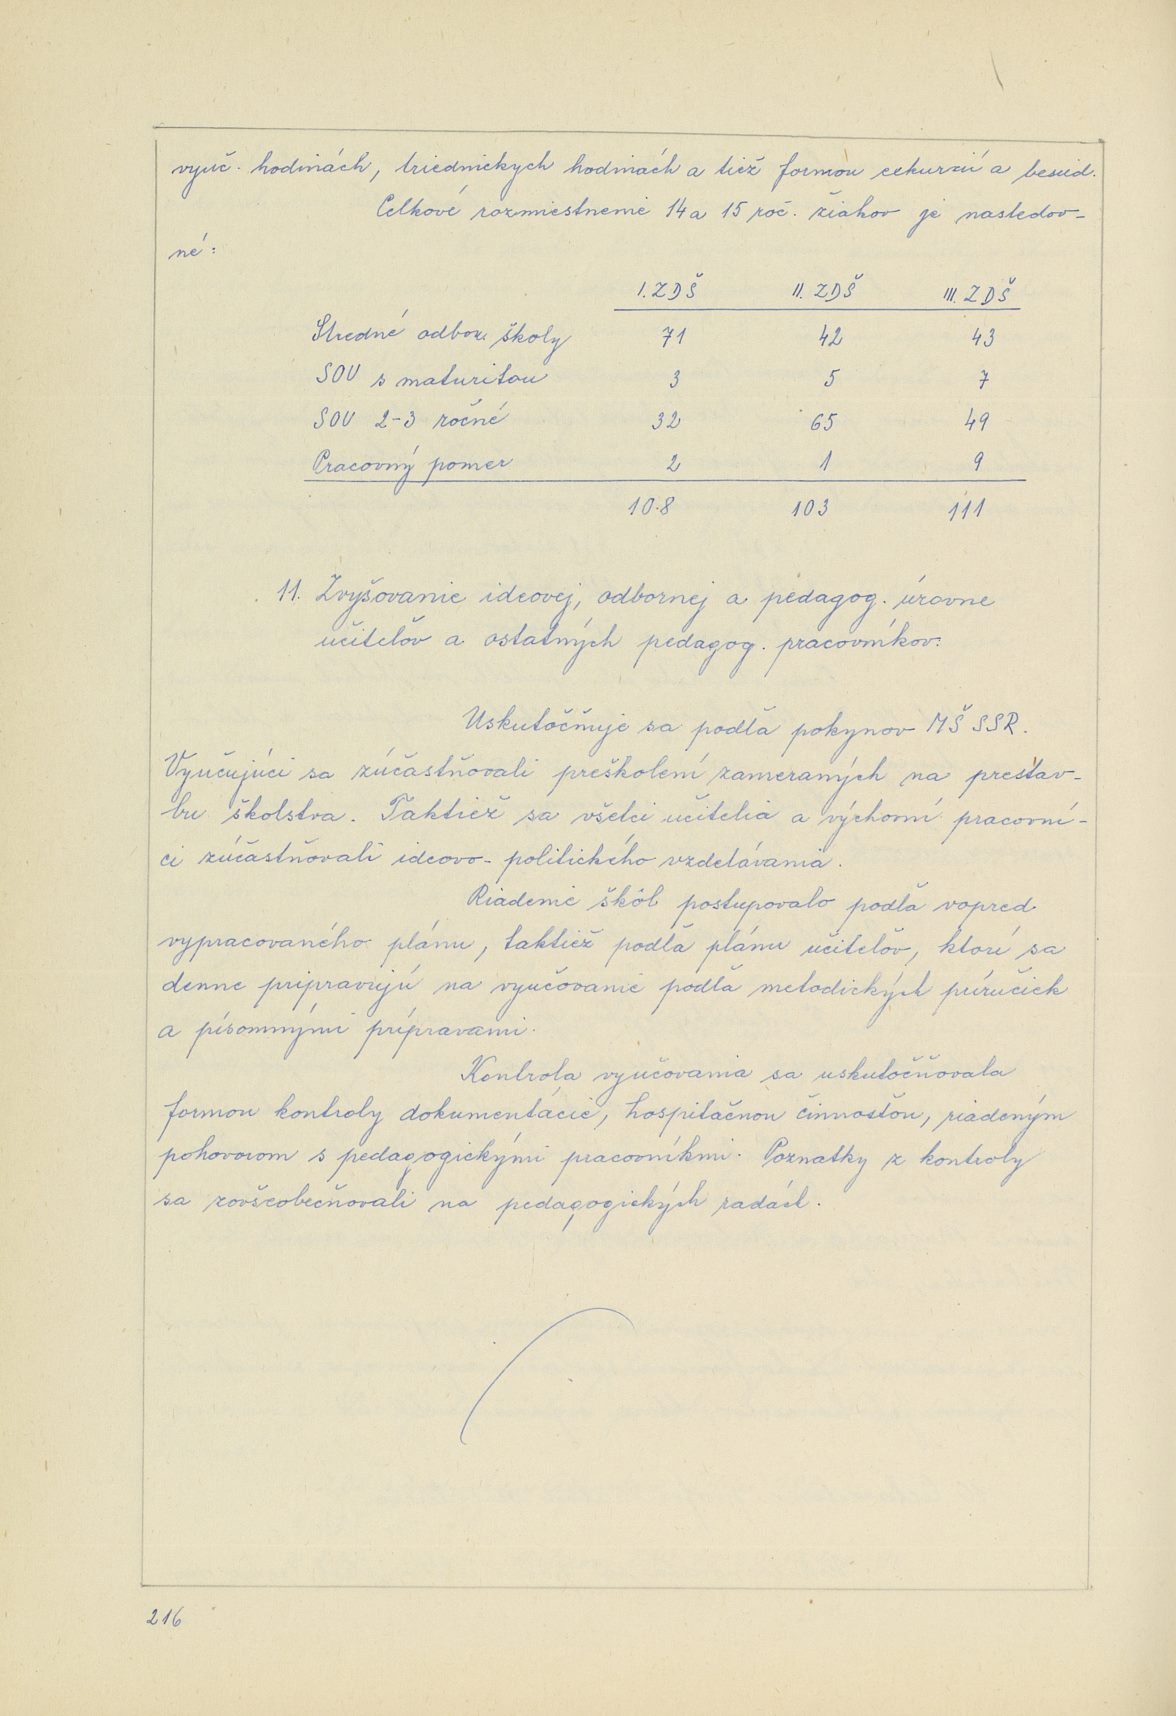 vyuč. hodinách, triednickych hodinách a tiež formou exkurzií a besied.
Celkové rozmiestnenie 14 a 15 roč. žiakov je nasledov-
né:
I. ZDŠ II. ZDŠ III. ZDŠ
Stredné odbor. školy 71 42 43
SOU s maturitou 3 5 7
SOU 2-3 ročné 32 65 49
Pracovný pomer 2 1 9
108 103 111
11. Zvyšovanie ideovej, odbornej a pedagog. úrovne
učiteľov a ostatných pedagog. pracovníkov:
Uskutočňuje sa podľa pokynov MŠ SSR.
Vyučujúci sa zúčastňovali preškolení zameraných na prestav-
bu školstva. Taktiež sa všetci učitelia a výchovní pracovní-
ci zúčastňovali ideovo-politického vzdelávania.
Riadenie škôl postupovalo podľa vopred
vypracovaného plánu, taktiež podľa plánu učiteľov, ktorí sa
denne pripravujú na vyučovanie podľa metodických príručiek
a písomnými prípravami.
Kontrola vyučovania sa uskutočňovala
formou kontroly dokumentácie, hospitačnou činnosťou, riadeným
pohovorom s pedagogickými pracovníkmi. Poznatky z kontroly
sa zovšeobecňovali na pedagogických radách.
216